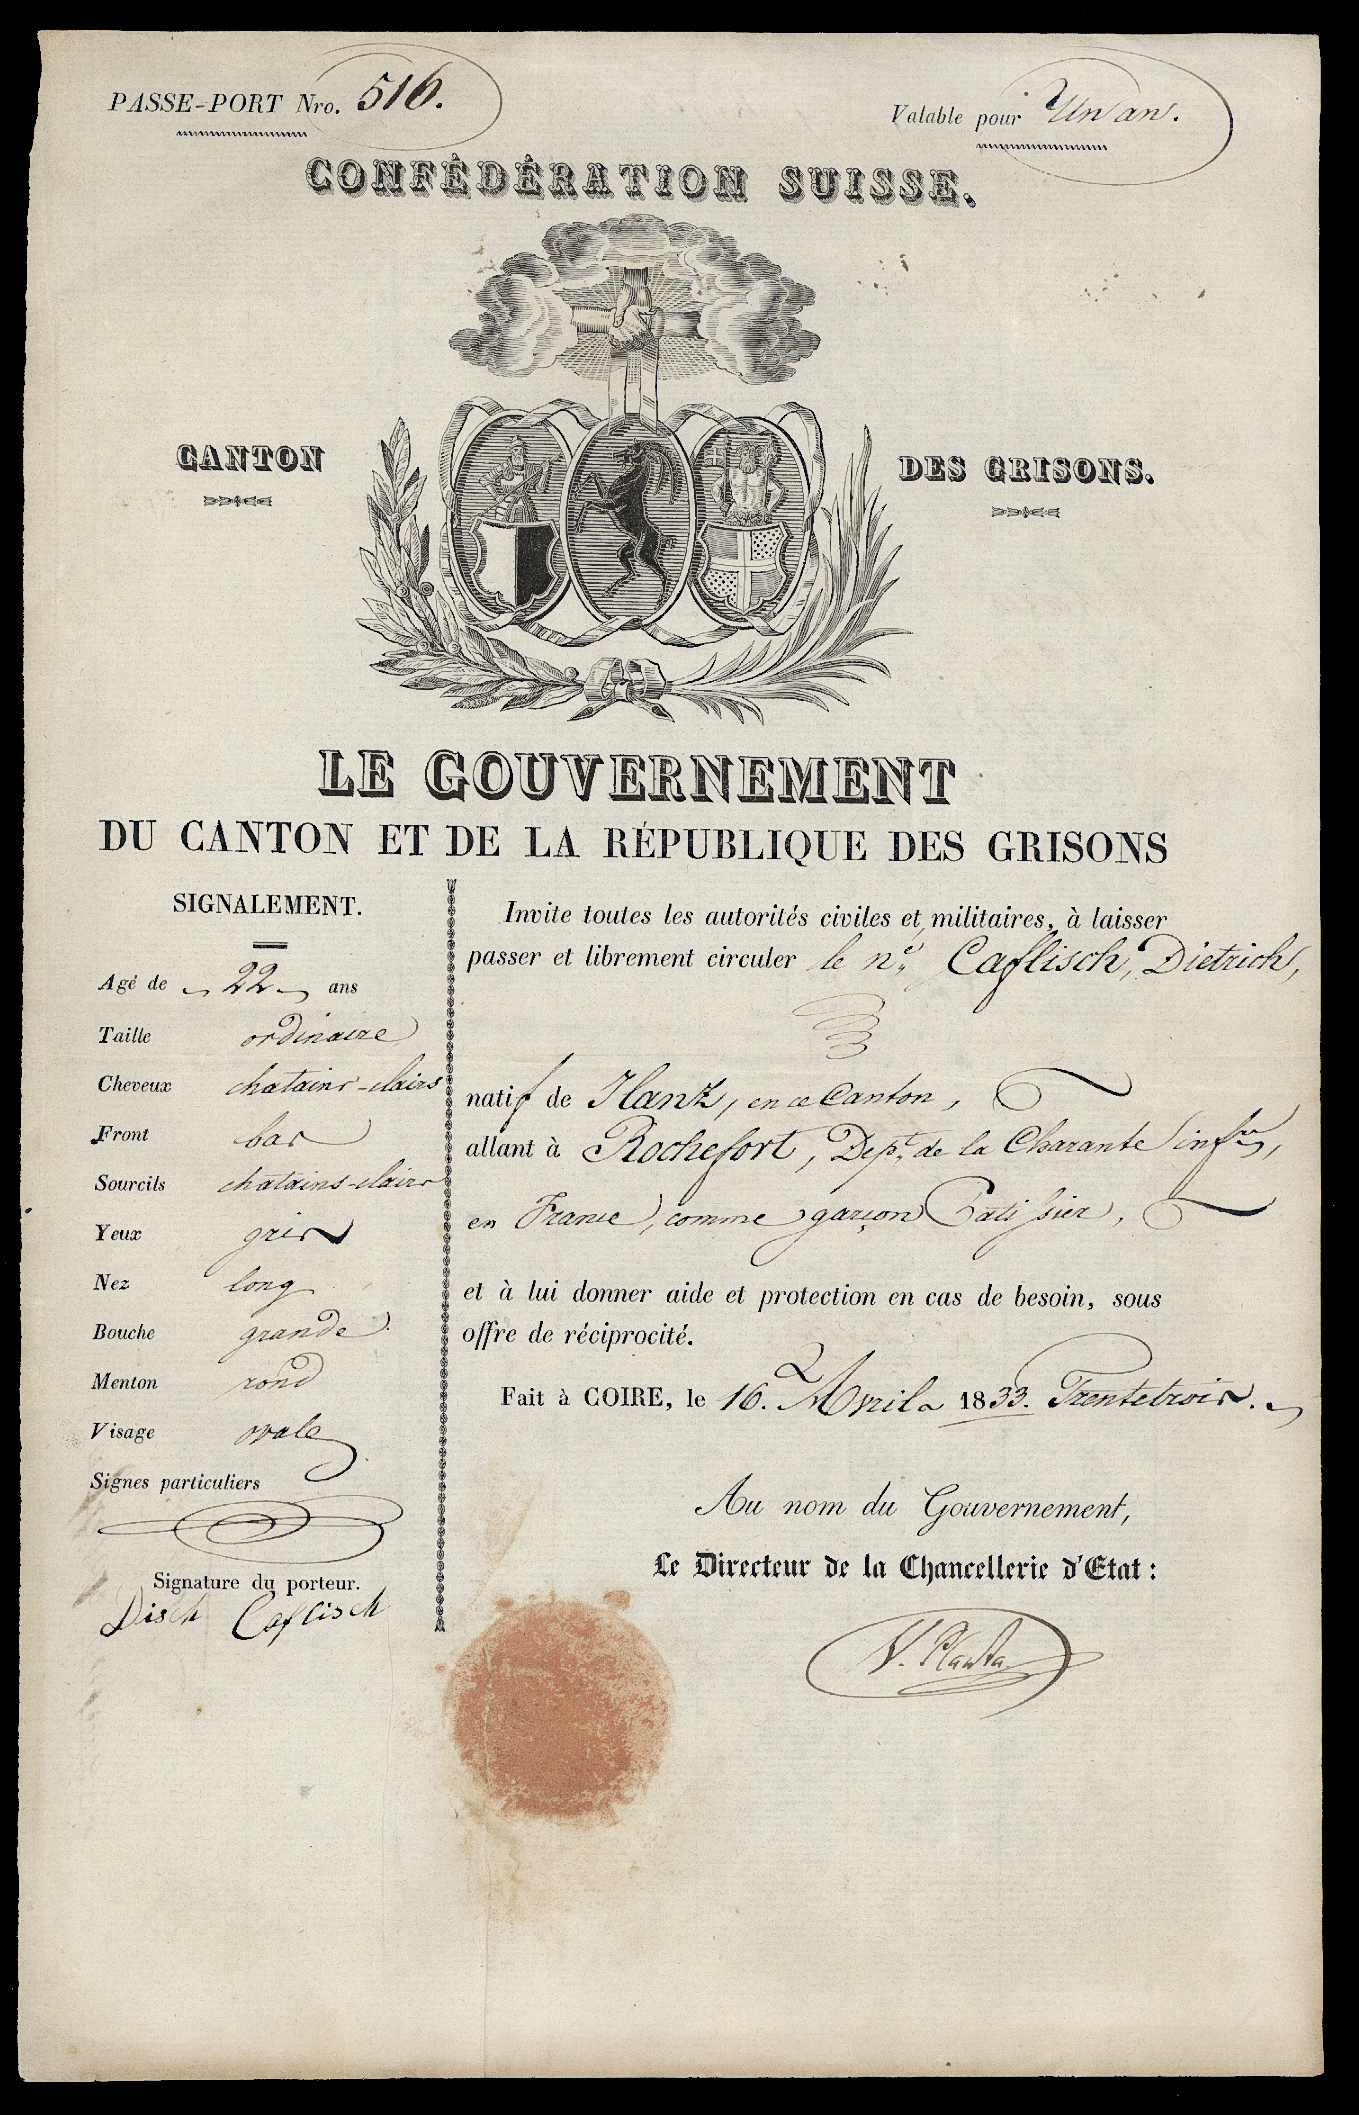 PASSE-PORT Nro. 516.
Valable pour Un an.
CONFÉDÉRATION SUISSE.
CANTON DES GRISONS.
LE GOUVERNEMENT
DU CANTON ET DE LA RÉPUBLIQUE DES GRISONS
SIGNALEMENT.
Agé de 22 ans
Taille ordinaire
Cheveux chatains-clairs
Front bas
Sourcils chatains-clairs
Yeux gris
Nez long
Bouche grande
Menton rond
Visage ovale
Signes particuliers
Signature du porteur.
Disch Caflisch
Invite toutes les autorités civiles et militaires, à laisser
passer et librement circuler le né Caflisch, Dietrich,
natif de Ilanz, en ce Canton,
allant à Rochefort, Dept. de la Charante infre,
en France, comme garçon Patissier,
et à lui donner aide et protection en cas de besoin, sous
offre de réciprocité.
Fait à COIRE, le 16. Avril 1833. Trentetrois.
Au nom du Gouvernement,
Le Directeur de la Chancellerie d'Etat:
V. Planta